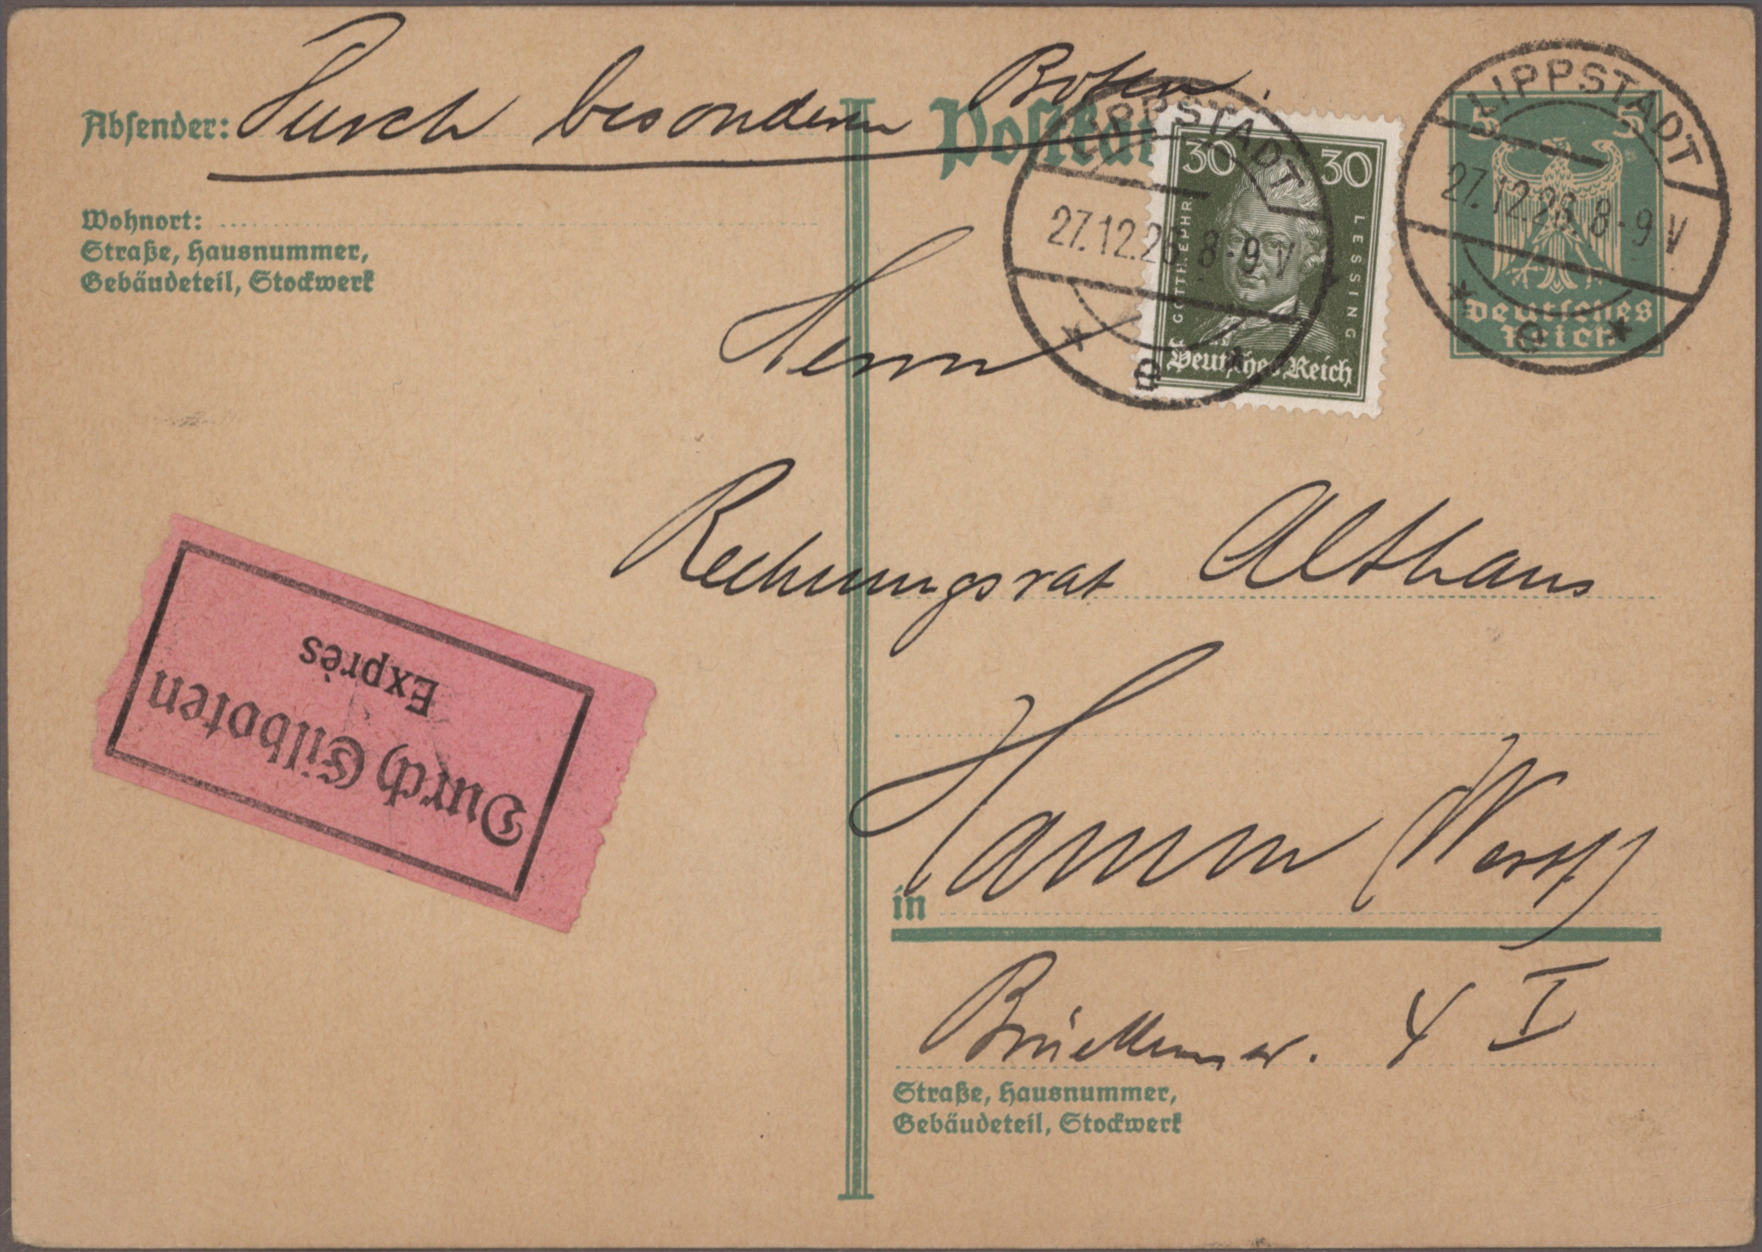 Absender: Durch besonderen Boten.
Postkar
Wohnort:
Straße, Hausnummer,
Gebäudeteil, Stockwerk
LIPPSTADT
27.12.26. 8-9 V
* e *
30 30
GOTTH. EPHR. LESSING
Deutsches Reich
LIPPSTADT
27.12.26. 8-9 V
* e *
5 5
Deutsches
Reich
Herrn
Rechnungsrat Althaus
Durch Eilboten
Exprès
in Hamm (Westf)
4 I
Straße, Hausnummer,
Gebäudeteil, Stockwerk